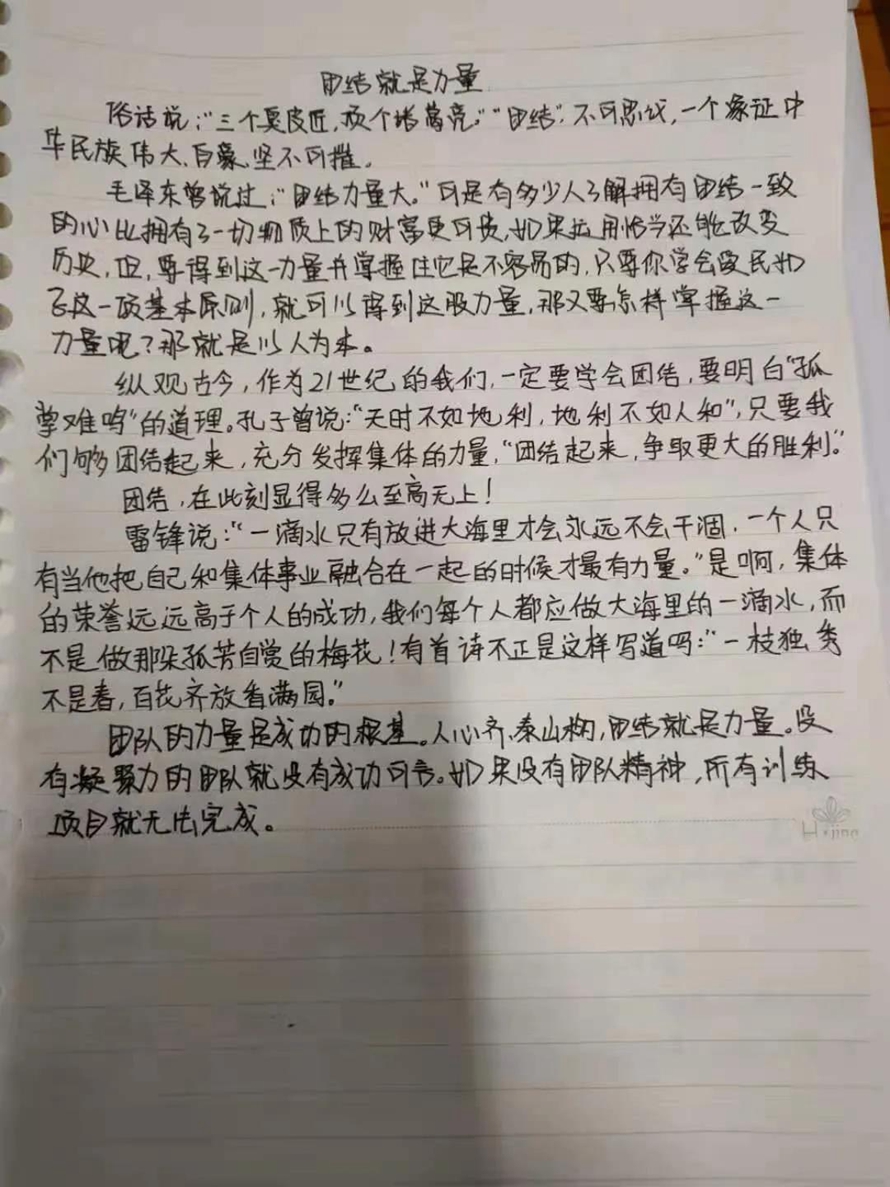 团结就是力量
俗话说:“三个臭皮匠,顶个诸葛亮,”“团结”,不可思议,一个象征中
华民族伟大、自豪、坚不可摧。
毛泽东曾说过:“团结力量大。”可是有多少人了解拥有团结一致
的心比拥有了一切物质上的财富更可贵,如果运用恰当还能改变
历史,但,要得到这一力量并掌握住它是不容易的,只要你学会爱民如
己这一项基本原则,就可以得到这股力量,那又要怎样掌握这一
力量呢?那就是以人为本。
纵观古今,作为21世纪的我们,一定要学会团结,要明白“孤
掌难鸣”的道理。孔子曾说:“天时不如地利,地利不如人和”,只要我
们够团结起来,充分发挥集体的力量,“团结起来,争取更大的胜利。”
团结,在此刻显得多么至高无上!
雷锋说:“一滴水只有放进大海里才会永远不会干涸,一个人只
有当他把自己和集体事业融合在一起的时候才最有力量。”是啊,集体
的荣誉远远高于个人的成功,我们每个人都应做大海里的一滴水,而
不是做那朵孤芳自赏的梅花!有首诗不正是这样写道吗:“一枝独秀
不是春,百花齐放春满园。”
团队的力量是成功的根基。人心齐,泰山移,团结就是力量。没
有凝聚力的团队就没有成功可言。如果没有团队精神,所有训练
项目就无法完成。